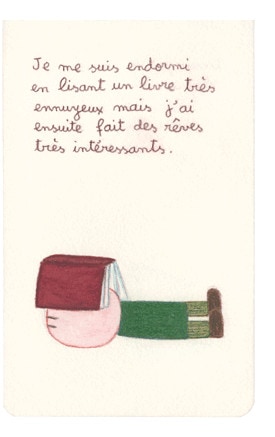 Je me suis endormi
en lisant un livre très
ennuyeux mais j'ai
ensuite fait des rêves
très intéressants.